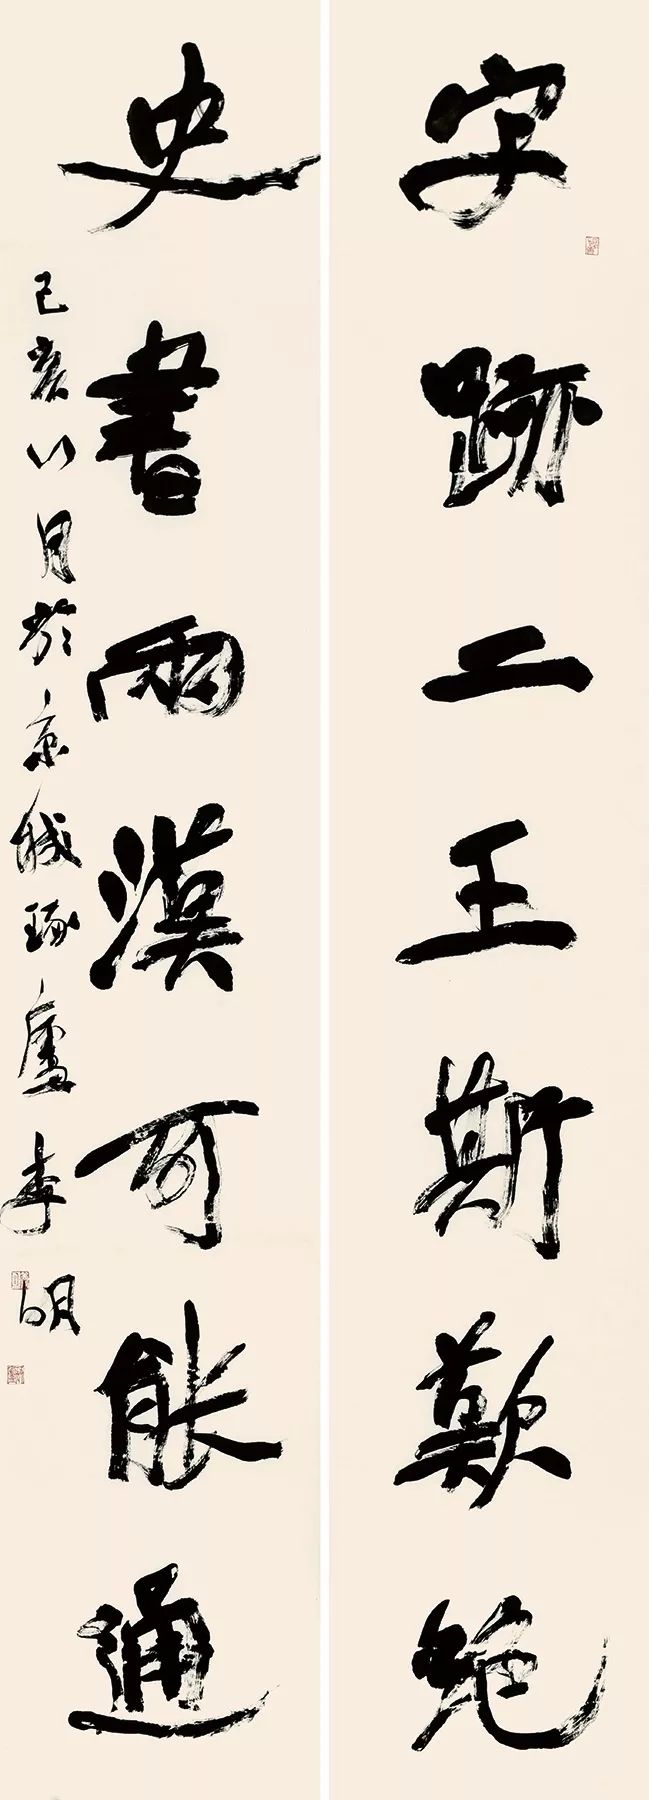 字跡二王斯歎絶
史書兩漢可能通
己亥八月於京城琢廬李明